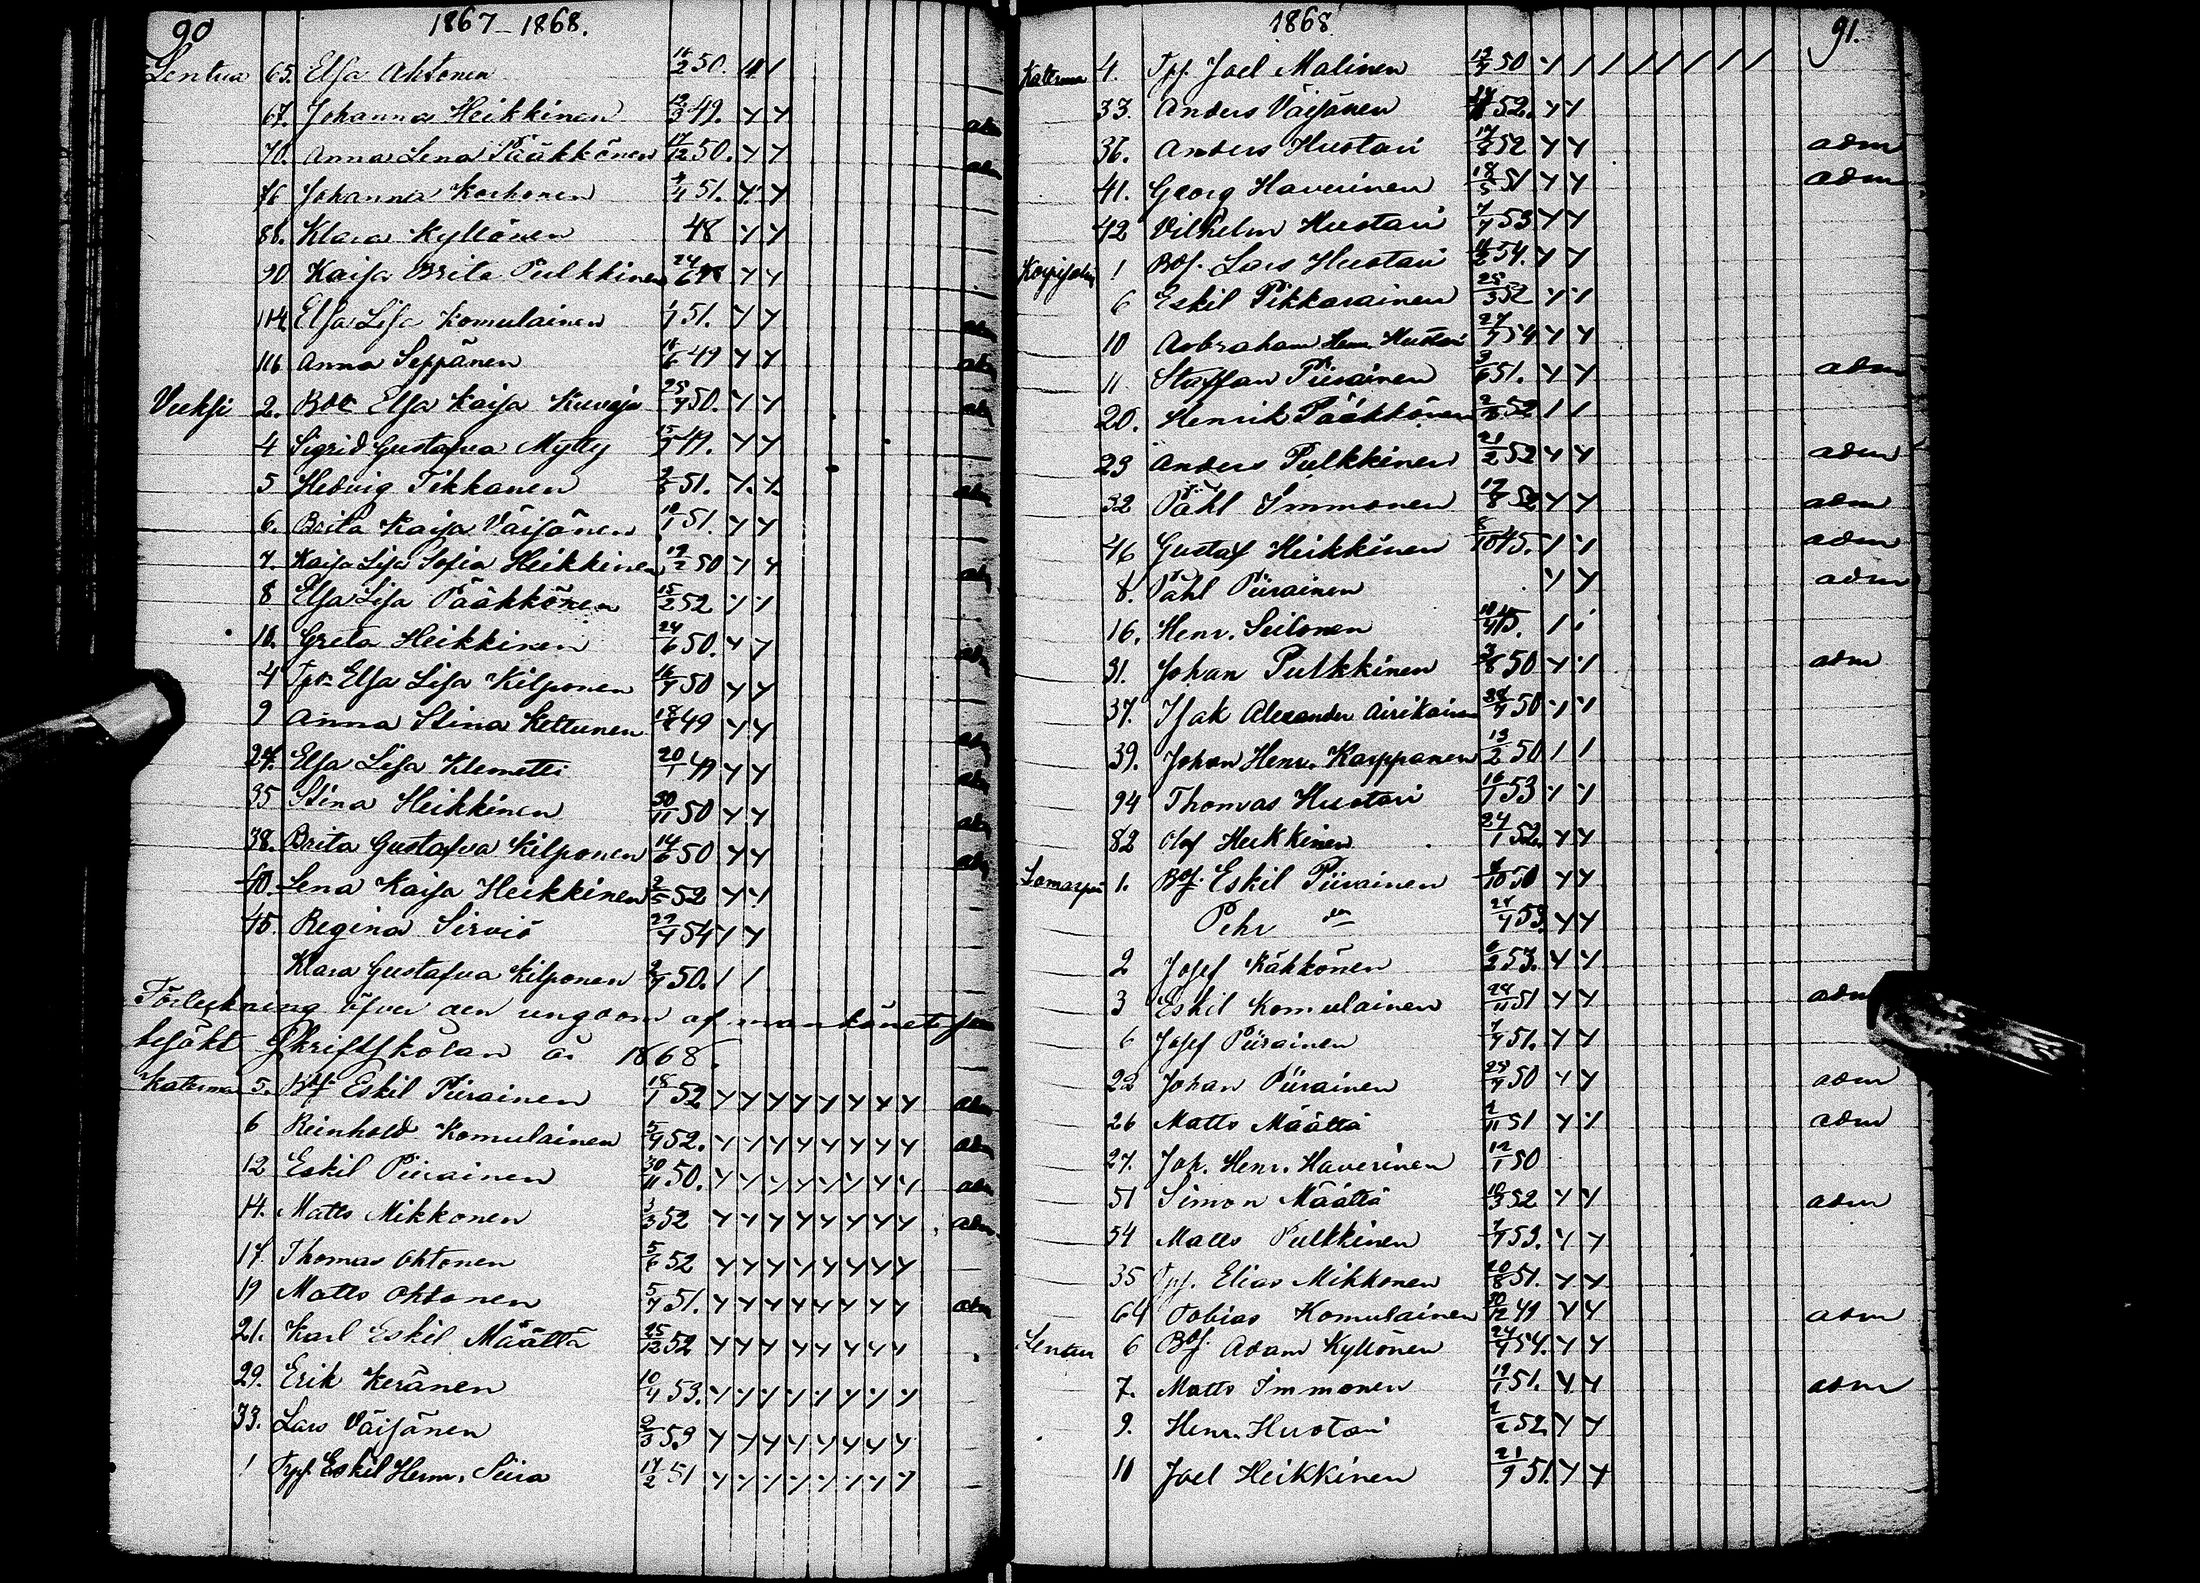 90 1867–1868.
Lentua 65. Elsa Ahtonen 16/2 50.
67. Johanna Heikkinen 12/3 49. adm
70. Anna Lena Pääkkönen 17/12 50. adm
76 Johanna Korhonen 51.
86. Klara Kyllönen 48
90 Kaisa Brita Pulkkinen 24/6 48
114 Elsa Lisa Komulainen 51. adm
116 Anna Seppänen 16/6 49 adm
Vieksi 2. Elsa Kaisa Kuvaja 25/7 50. adm
4 Sigrid Gustafva Mytty 49.
5 Hedvig Tikkanen 51. adm
6. Brita Kaisa Väisänen 10/1 51.
7. Kaisa Lisa Sofia Heikkinen 19/2 50 adm
8 Elsa Lisa Pääkkönen 15/2 52
10. Greta Heikkinen 24/6 50. adm
4 Elsa Lisa Kilponen 16/7 50
9 Anna Stina Kettunen 18/8 49 adm
27. Elsa Lisa Klemetti 20/1 49 adm
35 Stina Heikkinen 30/11 50 adm
38. Brita Gustafva Kilponen 14/6 50 adm
40. Lena Kaisa Heikkinen 2/5 52
45. Regina Sirviö 54
Klara Gustafva Kilponen 50.
Förteckning öfver den ungdom af mankönet som
besökt Skriftskolan år 1868.
Katerma 5. Bdf Eskil Piirainen 18/1 52 adm
6 Reinhold Komulainen 52. adm
12 Eskil Piirainen 30/11 50. adm
14. Matts Mikkonen 3/3 52 adm
17 Thomas Ohtonen 5/6 52
19 Matts Ohtonen 51. adm
21. Karl Eskil Määttä 25/12 52
29. Erik Keränen 53.
33. Lars Väisänen 53
1 Eskil Herm. Siira 17/2 51
1868 91.
Katerma 4. Tpf. Joel Malinen 50
33. Anders Väisänen 52.
36. Anders Huotari 52 adm
41. Georg Haverinen 18/5 51 adm
42 Vilhelm Huotari 53
1 Bdf. Lars Huotari 54.
6 Eskil Pikkarainen 25/3 52
10 Abraham Henr. Huotari 54
11 Staffan Piirainen 3/6 51. adm
20. Henrik Pääkkönen 52
23 Anders Pulkkinen 21/2 52 adm
32 Påhl Immonen 52 adm
46 Gustaf Heikkinen 8/10 45. adm
8. Påhl Piirainen adm
16. Henr. Seilonen 45.
31. Johan Pulkkinen 50 adm
37. Isak Alexander Airikainen 50
39. Johan Henr. Karppanen 13/2 50
94 Thomas Huotari 53
82 Olof Heikkinen 24/1 52.
1. Bdf. Eskil Piirainen 50
Pehr 53.
2 Josef Kähkönen 53.
3 Eskil Komulainen 51 adm
6 Josef Piirainen 51.
22 Johan Piirainen 50 adm
26 Matts Määttä 51 adm
27. Joh. Henr. Haverinen 12/1 50
51 Simon Määttä 10/3 52 adm
54 Matts Pulkkinen 53.
35 Tpf. Elias Mikkonen 20/8 51.
64 Tobias Komulainen 30/12 49 adm
Lentua 6 Bdf. Adam Kyllönen 54.
7. Matts Immonen 19/1 51. adm
9. Henr. Huotari 52
11 Joel Heikkinen 21/9 51.